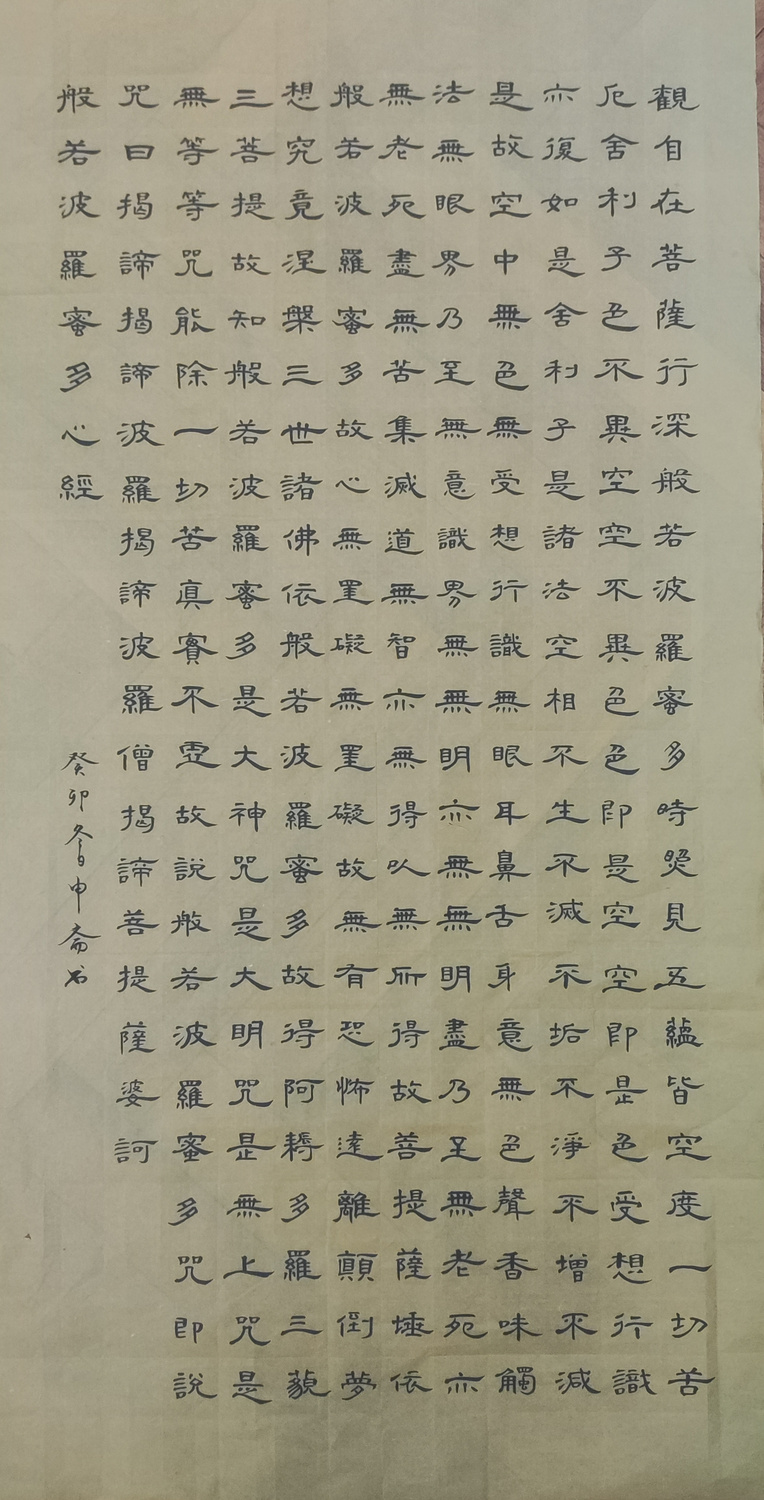 觀自在菩薩行深般若波羅蜜多時照見五蘊皆空度一切苦
厄舍利子色不異空空不異色色即是空空即是色受想行識
亦復如是舍利子是諸法空相不生不滅不垢不淨不增不減
是故空中無色無受想行識無眼耳鼻舌身意無色聲香味觸
法無眼界乃至無意識界無無明亦無無明盡乃至無老死亦
無老死盡無苦集滅道無智亦無得以無所得故菩提薩埵依
般若波羅蜜多故心無罣礙無罣礙故無有恐怖遠離顛倒夢
想究竟涅槃三世諸佛依般若波羅蜜多故得阿耨多羅三藐
三菩提故知般若波羅蜜多是大神咒是大明咒是無上咒是
無等等咒能除一切苦真實不虛故說般若波羅蜜多咒即說
咒曰揭諦揭諦波羅揭諦波羅僧揭諦菩提薩婆訶
般若波羅蜜多心經
癸卯冬日申斋书